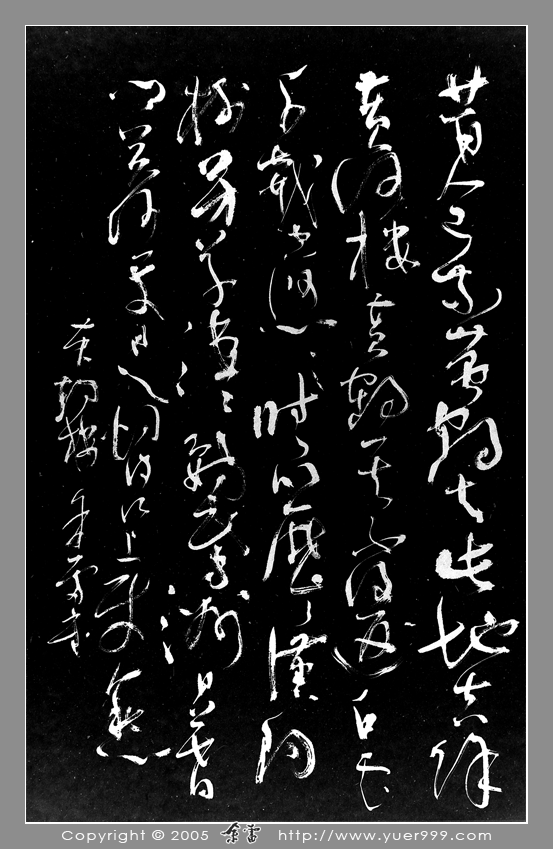 昔人已乘黃鶴去此地空餘
黃鶴樓黃鶴一去不復返白雲
千載空悠悠晴川歷歷漢陽
樹芳草萋萋鸚鵡洲日暮鄉
關何處是煙波江上使人愁
黃鶴樓
Copyright © 2005 http://www.yuer999.com